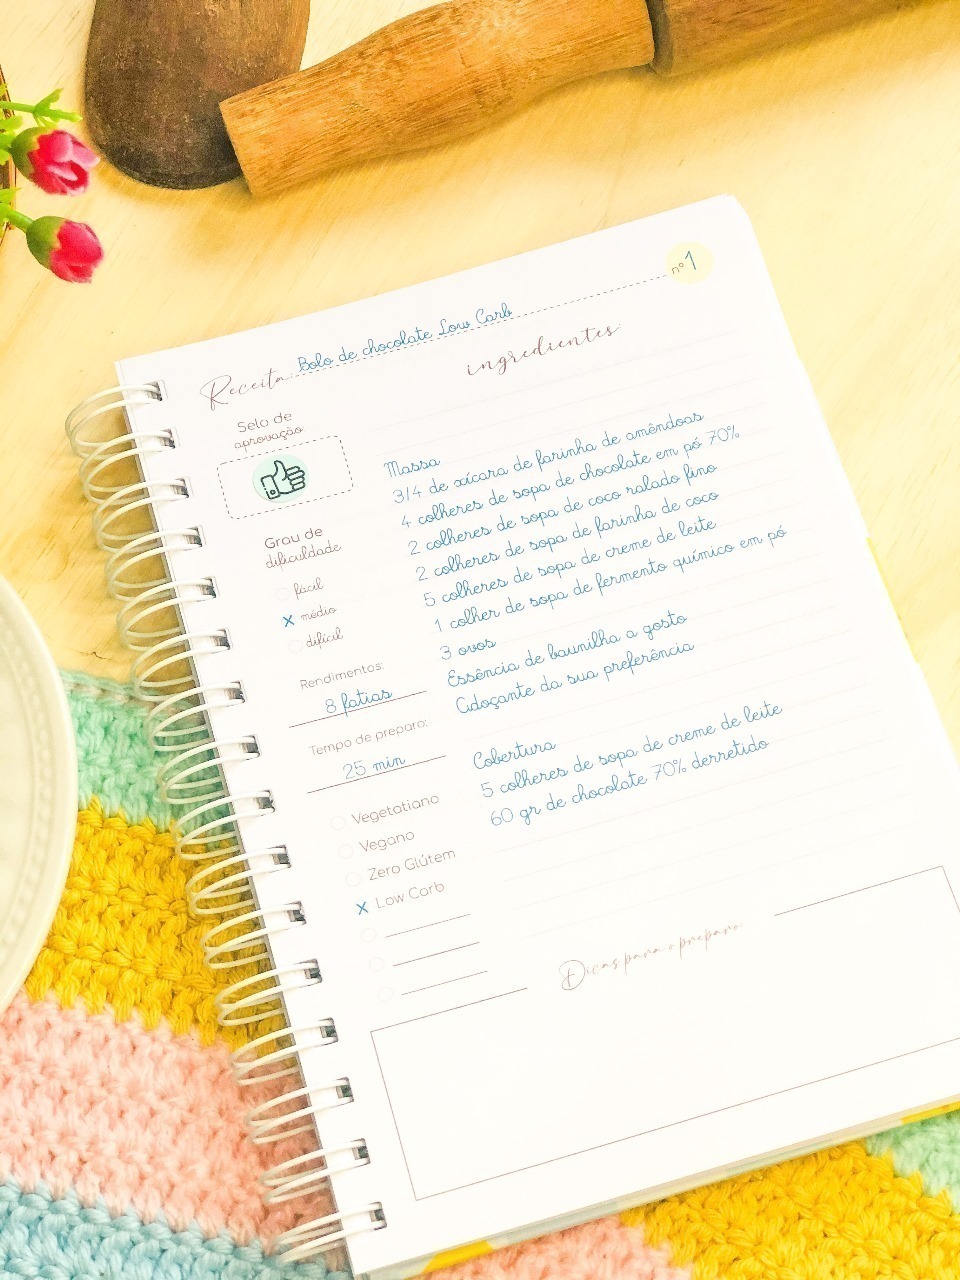 nº 1
Receita: Bolo de chocolate Low Carb
ingredientes:
Selo de
aprovação
Grau de
dificuldade
fácil
x médio
difícil
Rendimentos:
8 fatias
Tempo de preparo:
25 min
Vegetatiano
Vegano
Zero Glútem
x Low Carb
Massa
3/4 de xícara de farinha de amêndoas
4 colheres de sopa de chocolate em pó 70%
2 colheres de sopa de coco ralado fino
2 colheres de sopa de farinha de coco
5 colheres de sopa de creme de leite
1 colher de sopa de fermento químico em pó
3 ovos
Essência de baunilha a gosto
Adoçante da sua preferência
Cobertura
5 colheres de sopa de creme de leite
60 gr de chocolate 70% derretido
Dicas para o preparo